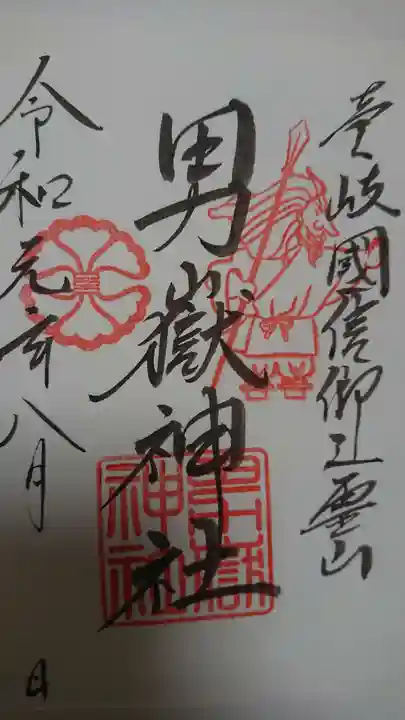 壱岐國信仰之霊山
男嶽神社
男嶽神社
令和元年八月 日